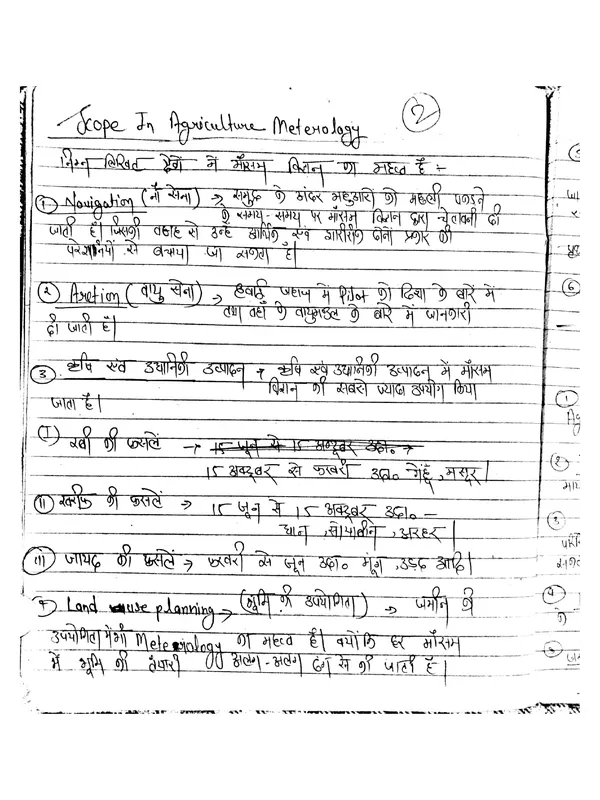 2
Scope In Agriculture Meterology
निम्न लिखित क्षेत्रो में मौसम विज्ञान का महत्व है :-
1 Navigation (नौ सेना) → समुद्र के अंदर मछुआरो को मछली पकडने
के समय-समय पर मौसम विज्ञान द्वारा चेतावनी दी
जाती है। जिसकी वहह से उन्हे आर्थिक एवं शारीरीक दोनों प्रकार की
परेशानियों से बचाया जा सकता है।
2 Avetion (वायु सेना) → हवाई जहाज में Pilot को दिशा के बारें में
तथा वहाँ के वायुमंडल के बारे में जानकारी
दी जाती है।
3 कृषि एवं उधानिकी उत्पादन → कृषि एवं उधानिकी उत्पादन में मौसम
विज्ञान की सबसे ज्यादा उपयोग किया
जाता है।
I रबी की फसलें → 15 जून से 15 अक्टूबर उदा० →
15 अक्टूबर से फरवरी उदा० गेंहूँ, मसूर।
II खरीफ की फसलें → 15 जून से 15 अक्टूबर उदा० –
धान, सोयाबीन, अरहर।
III जायद की फसलें → फरवरी से जून उदा० मूंग, उड़द आदि।
Land use planning → (भूमि की उपयोगिता) → जमीन की
उपयोगिता में भी Meterology का महत्व है। क्योंकि हर मौसम
में भूमि की तैयारी अलग-अलग ढंग से की जाती है।
6
1
Ag
2
3
4
के
5